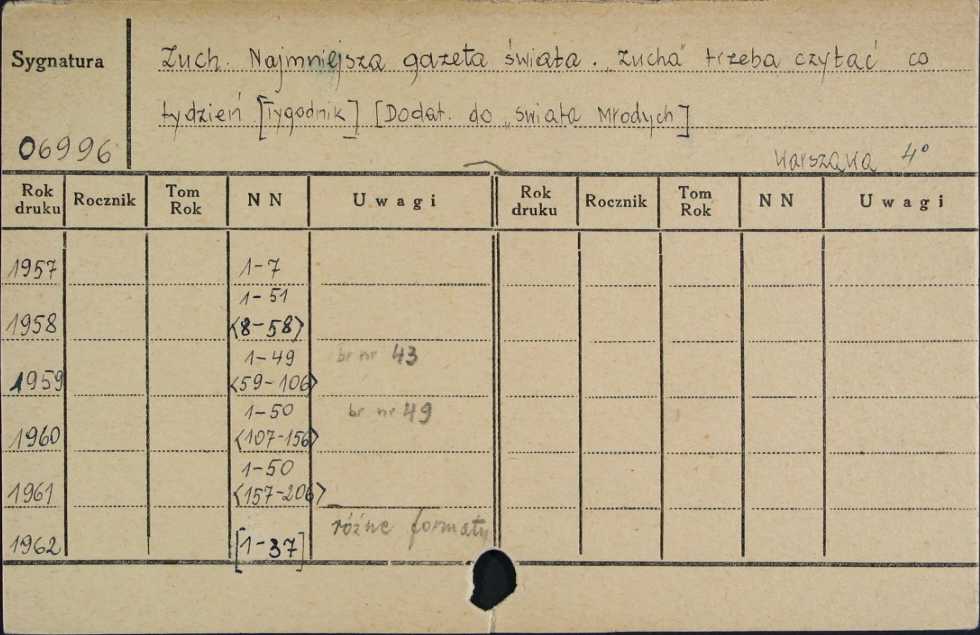 Sygnatura
Zuch. Najmniejsza gazeta świata. „Zucha” trzeba czytać co
tydzień [Tygodnik] [Dodat. do „Świata Młodych]
06996
Warszawa 4°
Rok druku Rocznik Tom Rok NN Uwagi Rok druku Rocznik Tom Rok NN Uwagi
1957 1-7
1-51
1958 <8-58>
1-49 br nr 43
1959 <59-106>
1-50 br nr 49
1960 <107-156>
1-50
1961 <157-206>
różne formaty
1962 [1-37]